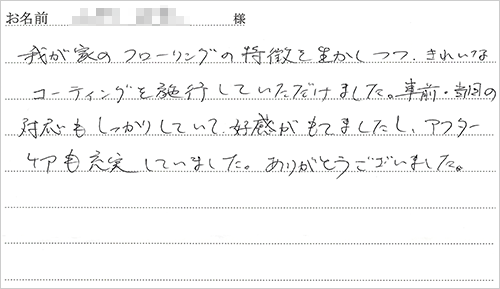 お名前 様
我が家のフローリングの特徴を生かしつつ、きれいな
コーティングを施行していただけました。事前・当日の
対応もしっかりしていて、好感がもてましたし、アフター
ケアも充実していました。ありがとうございました。